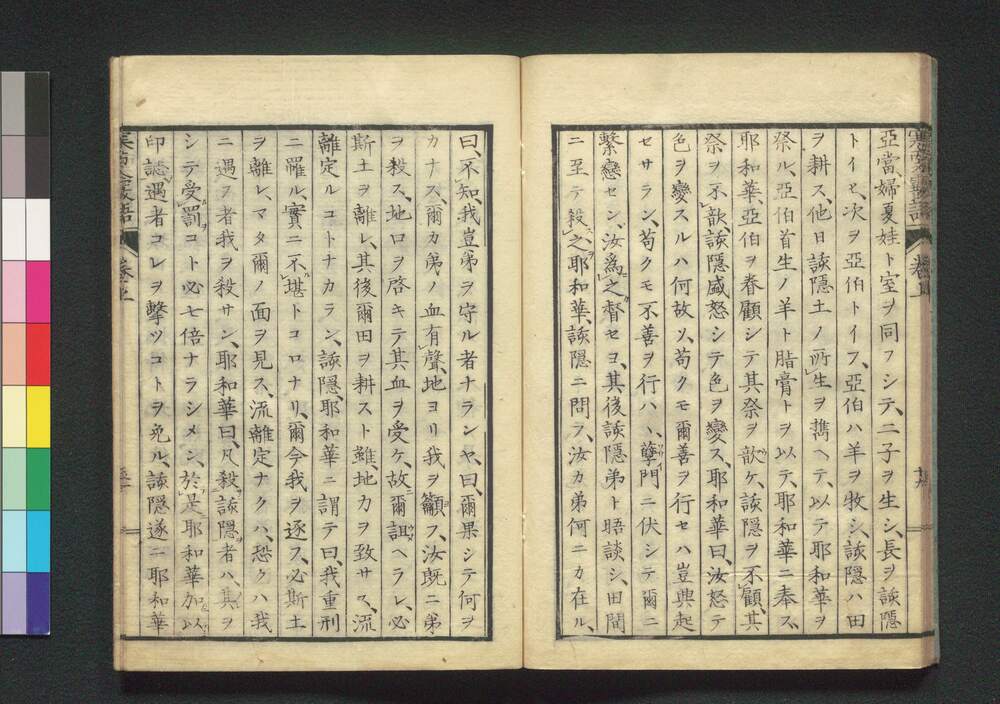 亞當、婦夏娃ト室ヲ同フシテ、二子ヲ生シ、長ヲ該隱
トイヒ、次ヲ亞伯トイフ、亞伯ハ羊ヲ牧シ、該隱ハ田
ヲ耕ス、他日該隱土ノ所生ヲ携ヘテ、以テ耶和華ヲ
祭ル、亞伯首生ノ羊ト脂膏トヲ以テ、耶和華ニ奉ス、
耶和華、亞伯ヲ眷顧シテ其祭ヲ歆ケ、該隱ヲ不顧、其
祭ヲ不歆、該隱盛怒シテ色ヲ變ス、耶和華曰、汝怒テ
色ヲ變スルハ何故ソ、苟クモ爾善ヲ行セハ豈興起
セサラン、苟クモ不善ヲ行ハヽ、孽門ニ伏シテ爾ニ
繫戀セン、汝爲之督セヨ、其後該隱弟ト晤談シ、田間
ニ至テ殺之、耶和華、該隱ニ問フ、汝カ弟何ニカ在ル、
曰、不知、我豈弟ヲ守ル者ナランヤ、曰、爾果シテ何ヲ
カナス、爾カ弟ノ血有聲、地ヨリ我ヲ籲フ、汝既ニ弟
ヲ殺ス、地口ヲ啓キテ其血ヲ受ケ、故爾詛ヘラレ、必
斯土ヲ離レ、其後爾田ヲ耕スト雖、地力ヲ致サス、流
離定ルコトナカラン、該隱、耶和華ニ謂テ曰、我重刑
ニ罹ル、實ニ不堪トコロナリ、爾今我ヲ逐ス、必斯土
ヲ離レ、マタ爾ノ面ヲ見ス、流離定ナクハ、恐クハ我
ニ遇フ者我ヲ殺サン、耶和華曰、凡殺該隱者ハ、其ヲ
シテ受罰コト必七倍ナラシメン、於是耶和華加以
印誌、遇者コレヲ擊ツコトヲ免ル、該隱遂ニ耶和華